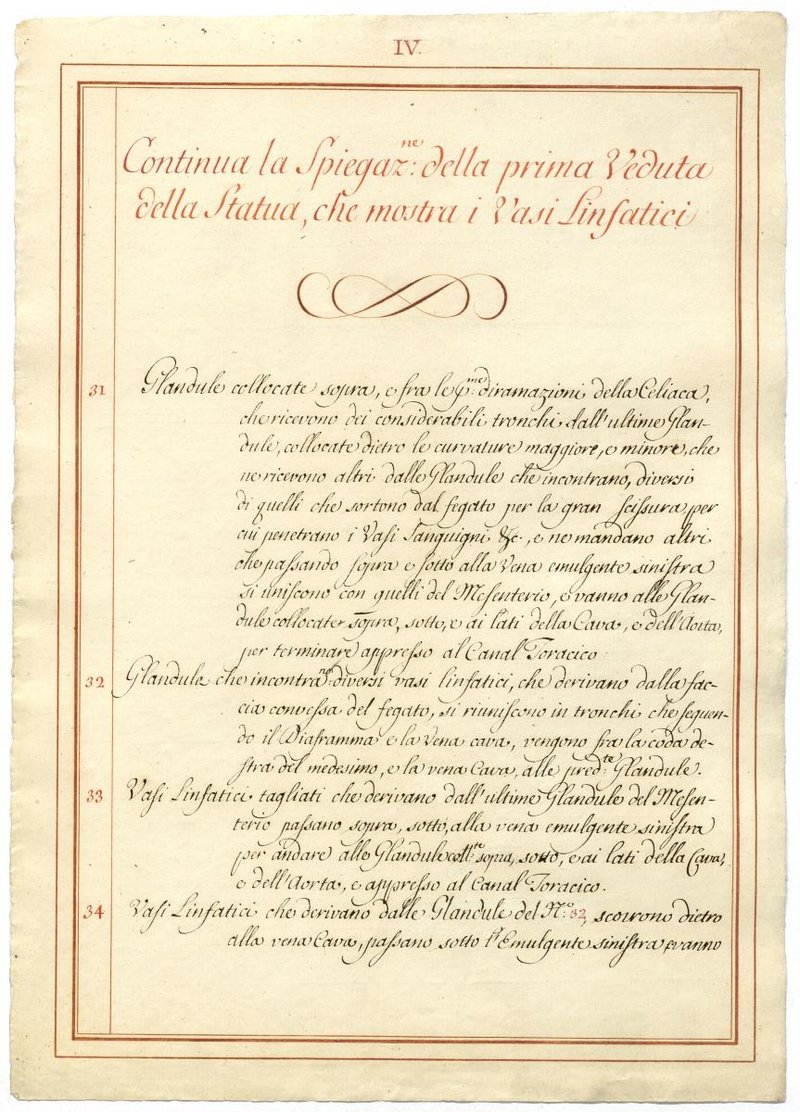 IV.
Continua la Spiegaz.ne: della prima Veduta
della Statua, che mostra i Vasi Linfatici
31 Glandule collocate sopra, e fra le p.me diramazioni della Celiaca,
che ricevono dei considerabili tronchi dall'ultime Glan-
dule, collocate dietro le curvature maggiore, e minore, che
ne ricevono altri dalle Glandule che incontrano, diversi
di quelli che sortono dal fegato per la gran scissura per
cui penetrano i Vasi Sanguigni &c., e ne mandano altri
che passando sopra e sotto alla Vena emulgente sinistra
si uniscono con quelli del Mesenterio, e vanno alle Glan-
dule collocate sopra, sotto, e ai lati della Cava, e dell'Aorta,
per terminare appresso al Canal Toracico
32 Glandule che incontra.no diversi vasi linfatici, che derivano dalla fac-
cia convessa del fegato, si riuniscono in tronchi che seguen-
do il Diaframma e la Vena cava, vengono fra la coda de-
stra del medesimo, e la vena Cava, alle pred.te Glandule.
33 Vasi Linfatici tagliati che derivano dall'ultime Glandule del Mesen-
terio passano sopra, sotto, alla vena emulgente sinistra
per andare alle Glandule coll.te sopra, sotto, e ai lati della Cava,
e dell'Aorta, e appresso al Canal Toracico.
34 Vasi Linfatici che derivano dalle Glandule del N.o: 32, scorrono dietro
alla vena Cava, passano sotto l'Emulgente sinistra e vanno